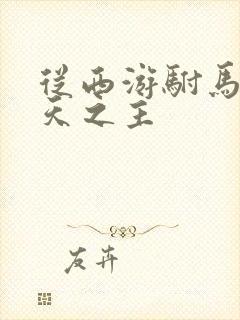 從西游駙馬
天之主
友卉